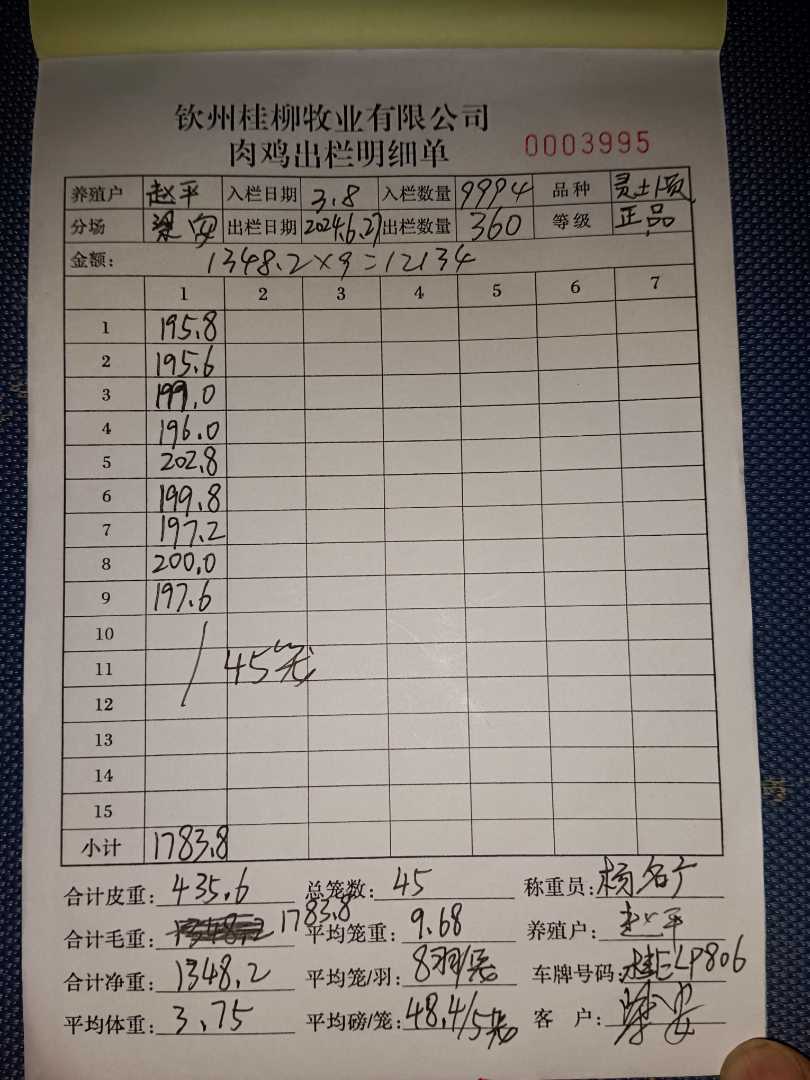 钦州桂柳牧业有限公司
肉鸡出栏明细单 0003995
养殖户 赵平 入栏日期 3.8 入栏数量 9994 品种 灵土1项
分场 梁安 出栏日期 2024.6.27 出栏数量 360 等级 正品
金额: 1348.2×9=12134
1 2 3 4 5 6 7
1 195.8
2 195.6
3 199.0
4 196.0
5 202.8
6 199.8
7 197.2
8 200.0
9 197.6
10
11 45笼
12
13
14
15
小计 1783.8
合计皮重: 435.6 总笼数: 45 称重员: 杨名广
合计毛重: 1783.8 平均笼重: 9.68 养殖户: 赵平
合计净重: 1348.2 平均笼/羽: 8羽/笼 车牌号码: 桂ELP806
平均体重: 3.75 平均磅/笼: 48.4/5笼 客户: 梁安